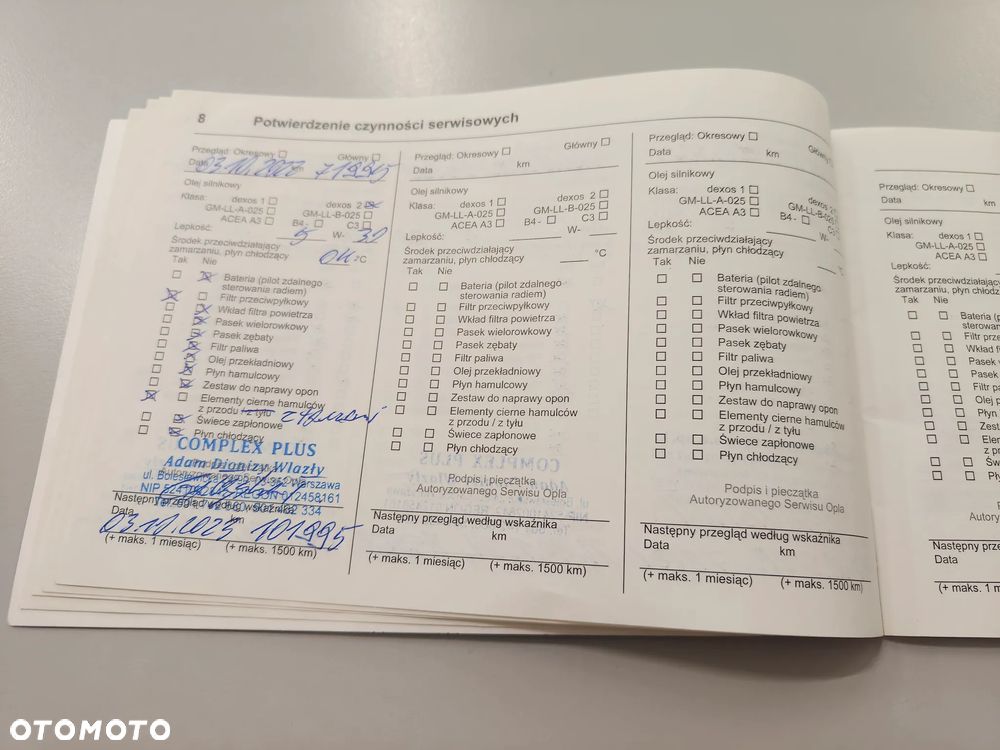 8 Potwierdzenie czynności serwisowych
Przegląd: Okresowy ☐ Główny ☐
Data 03.10.2022 km 71995
Olej silnikowy
Klasa: dexos 1 ☐ dexos 2 ☒
GM-LL-A-025 ☐ GM-LL-B-025 ☐
ACEA A3 ☐ B4 - ☐ C3 ☐
Lepkość: 5 W- 30
Środek przeciwdziałający
zamarzaniu, płyn chłodzący OK °C
Tak Nie
☐ ☒ Bateria (pilot zdalnego
sterowania radiem)
☒ ☐ Filtr przeciwpyłkowy
☐ ☒ Wkład filtra powietrza
☐ ☒ Pasek wielorowkowy
☐ ☒ Pasek zębaty
☐ ☒ Filtr paliwa
☐ ☒ Olej przekładniowy
☐ ☒ Płyn hamulcowy
☐ ☒ Zestaw do naprawy opon
☒ ☐ Elementy cierne hamulców
z przodu / z tyłu
☐ ☒ Świece zapłonowe
☐ ☒ Płyn chłodzący
COMPLEX PLUS
Adam Dionizy Wlazły
Warszawa
NIP
334
Następny przegląd według wskaźnika
Data km
03.10.2023 101995
(+ maks. 1 miesiąc) (+ maks. 1500 km)
Przegląd: Okresowy ☐ Główny ☐
Data km
Olej silnikowy
Klasa: dexos 1 ☐ dexos 2 ☐
GM-LL-A-025 ☐ GM-LL-B-025 ☐
ACEA A3 ☐ B4 - ☐ C3 ☐
Lepkość: W-
Środek przeciwdziałający
zamarzaniu, płyn chłodzący °C
Tak Nie
☐ ☐ Bateria (pilot zdalnego
sterowania radiem)
☐ ☐ Filtr przeciwpyłkowy
☐ ☐ Wkład filtra powietrza
☐ ☐ Pasek wielorowkowy
☐ ☐ Pasek zębaty
☐ ☐ Filtr paliwa
☐ ☐ Olej przekładniowy
☐ ☐ Płyn hamulcowy
☐ ☐ Zestaw do naprawy opon
☐ ☐ Elementy cierne hamulców
z przodu / z tyłu
☐ ☐ Świece zapłonowe
☐ ☐ Płyn chłodzący
Podpis i pieczątka
Autoryzowanego Serwisu Opla
Następny przegląd według wskaźnika
Data km
(+ maks. 1 miesiąc) (+ maks. 1500 km)
Przegląd: Okresowy ☐ Główny
Data km
Olej silnikowy
Klasa: dexos 1 ☐ dexos 2 ☐
GM-LL-A-025 ☐ GM-LL-B-025 ☐
ACEA A3 ☐ B4 - ☐ C3 ☐
Lepkość: W-
Środek przeciwdziałający
zamarzaniu, płyn chłodzący °C
Tak Nie
☐ ☐ Bateria (pilot zdalnego
sterowania radiem)
☐ ☐ Filtr przeciwpyłkowy
☐ ☐ Wkład filtra powietrza
☐ ☐ Pasek wielorowkowy
☐ ☐ Pasek zębaty
☐ ☐ Filtr paliwa
☐ ☐ Olej przekładniowy
☐ ☐ Płyn hamulcowy
☐ ☐ Zestaw do naprawy opon
☐ ☐ Elementy cierne hamulców
z przodu / z tyłu
☐ ☐ Świece zapłonowe
☐ ☐ Płyn chłodzący
Podpis i pieczątka
Autoryzowanego Serwisu Opla
Następny przegląd według wskaźnika
Data km
(+ maks. 1 miesiąc) (+ maks. 1500 km)
Przegląd: Okresowy ☐
Data km
Olej silnikowy
Klasa: dexos 1 ☐
GM-LL-A-025 ☐
ACEA A3 ☐
Lepkość:
Środek przeciwdziałający
zamarzaniu, płyn chłodzący
Tak Nie
☐ ☐ Bateria (p
sterowan
☐ ☐ Filtr prze
☐ ☐ Wkład fil
☐ ☐ Pasek
☐ ☐ Pasek
☐ ☐ Filtr pa
☐ ☐ Olej p
☐ ☐ Płyn
☐ ☐ Zest
☐ ☐ Elem
z pr
☐ ☐ Świ
☐ ☐ Pły
Po
Autory
Następny prze
Data
(+ maks. 1 m
OTOMOTO